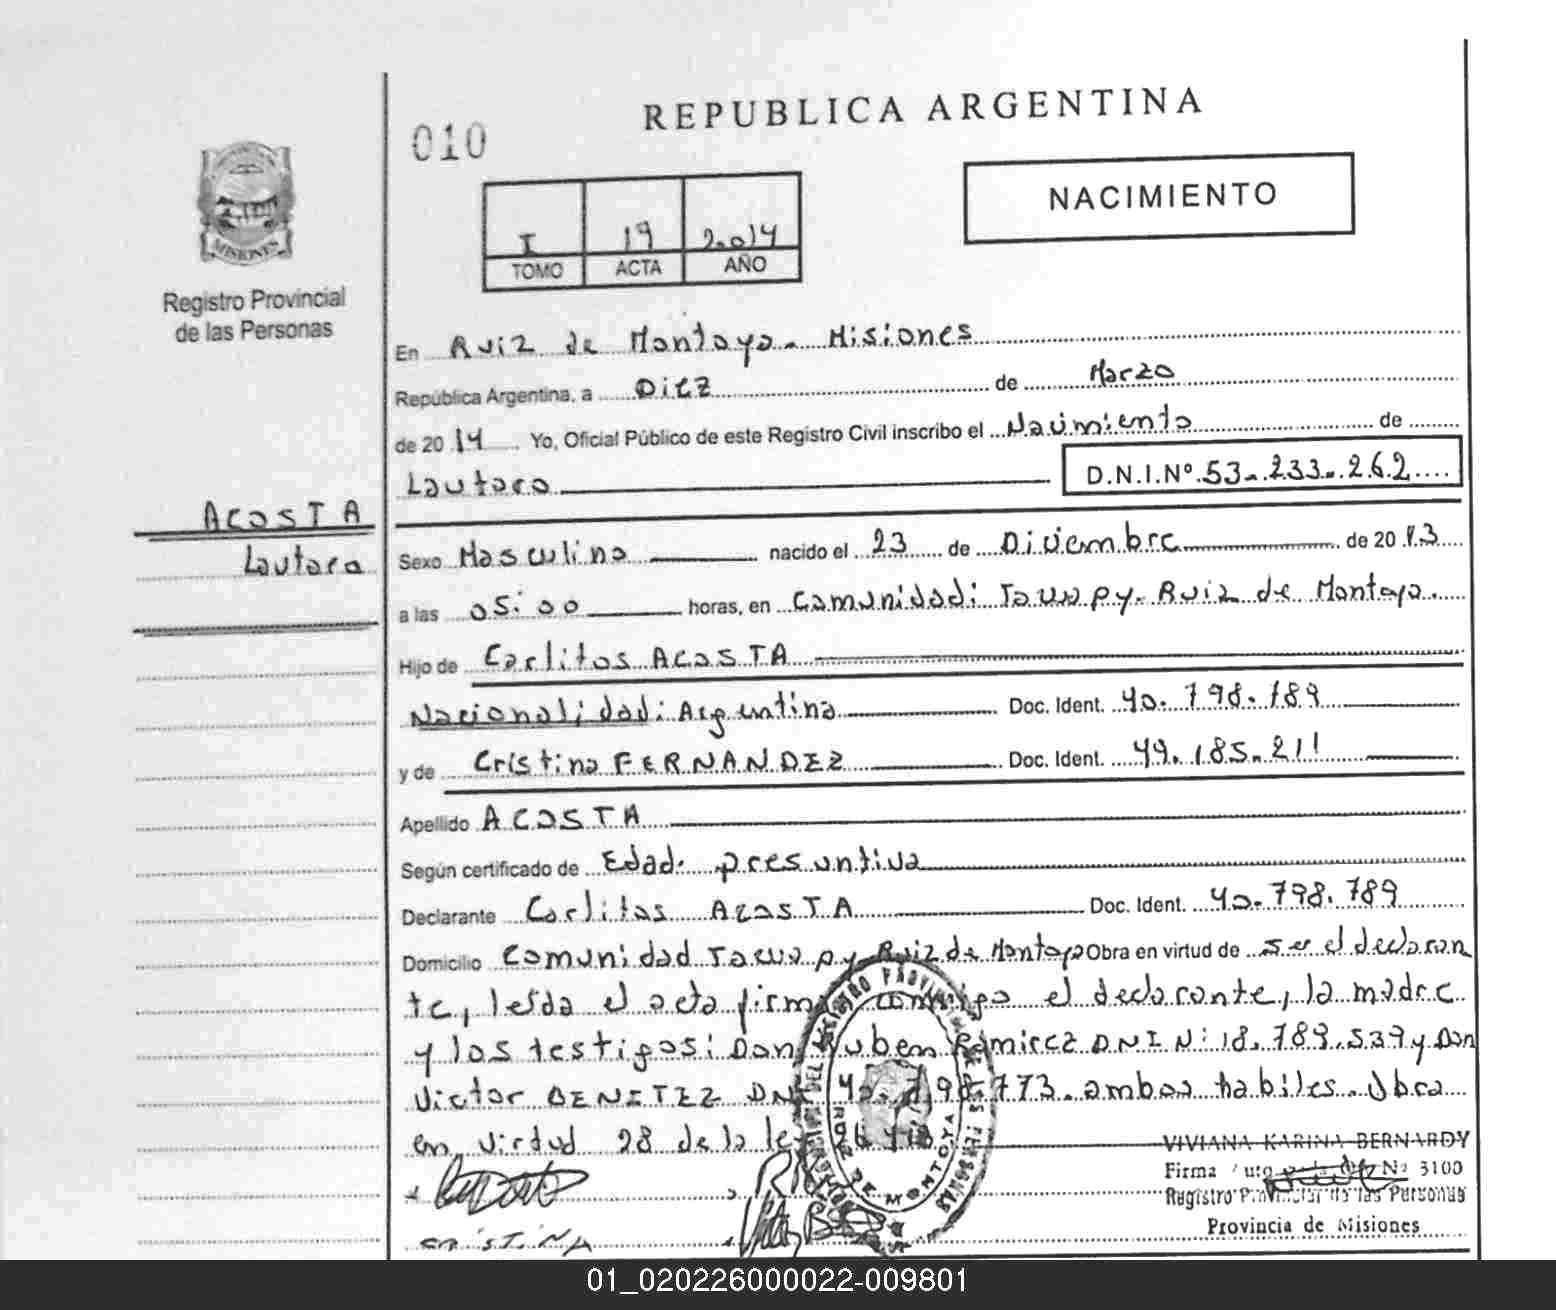 REPUBLICA ARGENTINA
010
NACIMIENTO
I 19 2.014
TOMO ACTA AÑO
MISIONES
Registro Provincial
de las Personas
En Ruiz de Montoya - Misiones
República Argentina, a Diez de Marzo
de 2014 Yo, Oficial Público de este Registro Civil inscribo el Nacimiento de
Lautaro D.N.I.Nº 53.233.262
ACOSTA
Lautaro
Sexo Masculino nacido el 23 de Diciembre de 2013
a las 05:00 horas, en Comunidad: Tacuapy - Ruiz de Montoya.
Hijo de Carlitos ACOSTA
Nacionalidad: Argentina Doc. Ident. 40.798.789
y de Cristina FERNANDEZ Doc. Ident. 49.185.211
Apellido ACOSTA
Según certificado de Edad presuntiva
Declarante Carlitos ACOSTA Doc. Ident. 40.798.789
Domicilio Comunidad Tacuapy Ruiz de Montoya Obra en virtud de ser el declaran
te, leída el acta firma conmigo el declarante, la madre
y los testigos: Don Ruben Ramirez DNI N: 18.789.539 y Don
Victor BENITEZ DNI 40.798.773. ambos habiles. Obra
en virtud 28 de la
VIVIANA KARINA BERNARDY
Firma Nº 3100
Registro Provincial de las Personas
Provincia de Misiones
CRISTINA
RUIZ DE MONTOYA
01_020226000022-009801